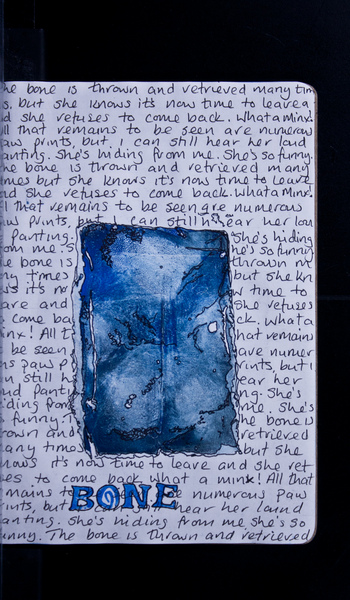 he bone is thrown and retrieved many tim
s, but she knows it's now time to leave a
d she refuses to come back. What a minx!
ll that remains to be seen are numerou
aw prints, but I can still hear her loud
anting. She's hiding from me. She's so funny.
he bone is thrown and retrieved many
mes but she knows it's now time to leave
nd she refuses to come back. What a minx!
l that remains to be seen are numerous
w prints, but I can still hear her lou
panting. She's hiding
om me. he's so funny
he bone is thrown an
ny times but she kn
ws it's no w time to
are and she refuses
come ba ck. What a
inx! All t hat remain
be seen ave numer
ws paw p rints, but I
n still h ear her
ud panti ng. She's
iding from me. She's
funny. T he bone is
rown and retrieved
any times but she
nows it's now time to leave and she ref
es to come back. What a minx! All that
mains to be numerous paw
ints, but hear her loud
anting. She's hiding from me. She's so
unny. The bone is thrown and retrieved
BONE